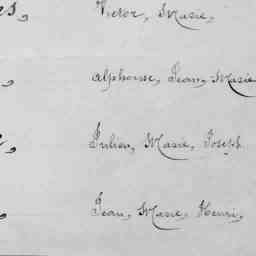 es, Victor, Marie,
, Alphonse, Jean, Marie
, Julien, Marie, Joseph
, Jean, Marie, Henri,